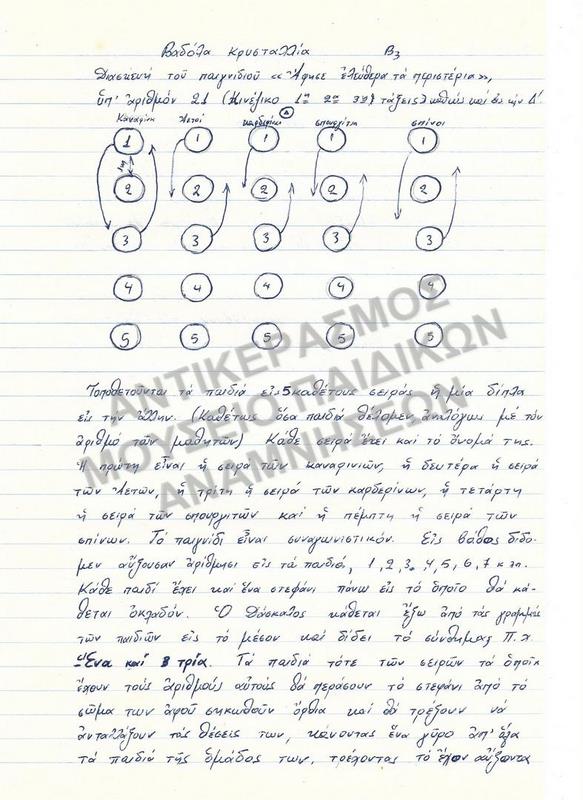 Βαδόλα Κρυσταλλία Β3
Διασκευή τοῦ παιγνιδιοῦ «Ἄφησε ἐλεύθερα τά περιστέρια»,
ὑπ' ἀριθμόν 21 (Κινέζικο 1ης 2ας 3ης τάξεις) καθώς καί ἐκ τήν Δ΄.
Καναρίνι Ἀετοί καρδερίνι σπουργίτη σπίνοι
Δ
1 1 1 1 1
2 2 2 2 2
3 3 3 3 3
4 4 4 4 4
5 5 5 5 5
ΑΝΤΙΚΕΡΑΣΜΟΣ
ΜΟΥΣΕΙΟ ΠΑΙΔΙΚΩΝ
ΑΝΑΜΝΗΣΕΩΝ
Τοποθετοῦνται τά παιδιά εἰς 5 καθέτους σειράς ἡ μία δίπλα
εἰς τήν ἄλλην. (Καθέτως ὅσα παιδιά θέλομεν ἀναλόγως μέ τόν
ἀριθμό τῶν μαθητῶν) Κάθε σειρά ἔχει καί τό ὄνομά της.
Ἡ πρώτη εἶναι ἡ σειρά τῶν καναρινιῶν, ἡ δευτέρα ἡ σειρά
τῶν Ἀετῶν, ἡ τρίτη ἡ σειρά τῶν καρδερίνων, ἡ τετάρτη
ἡ σειρά τῶν σπουργιτῶν καί ἡ πέμπτη ἡ σειρά τῶν
σπίνων. Τό παιγνίδι εἶναι συναγωνιστικόν. Εἰς βάθος δίδο-
μεν αὔξουσαν ἀρίθμησι εἰς τά παιδιά, 1, 2, 3, 4, 5, 6, 7 κ λπ.
Κάθε παιδί ἔχει καί ἕνα στεφάνι πάνω εἰς τό ὁποῖο θά κά-
θεται ὀκλαδόν. Ὁ Δάσκαλος κάθεται ἔξω ἀπό τάς γραμμάς
τῶν παιδιῶν εἰς τό μέσον καί δίδει τό σύνθημα, π.χ.
"Ἕνα καί τρία. Τά παιδιά τότε τῶν σειρῶν τά ὁποῖα
ἔχουν τούς ἀριθμούς αὐτούς θά περάσουν τό στεφάνι ἀπό τό
σῶμα των ἀφοῦ σηκωθοῦν ὄρθια καί θά τρέξουν νά
ἀνταλλάξουν τάς θέσεις των, κάνοντας ἕνα γῦρο ἀπ' ὅλα
τά παιδιά τῆς ὁμάδος των, τρέχοντας τό ἔχον αὔξοντα